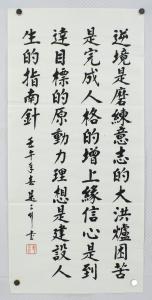 逆境是磨練意志的大洪爐困苦
是完成人格的增上緣信心是到
達目標的原動力理想是建設人
生的指南針
壬午年春